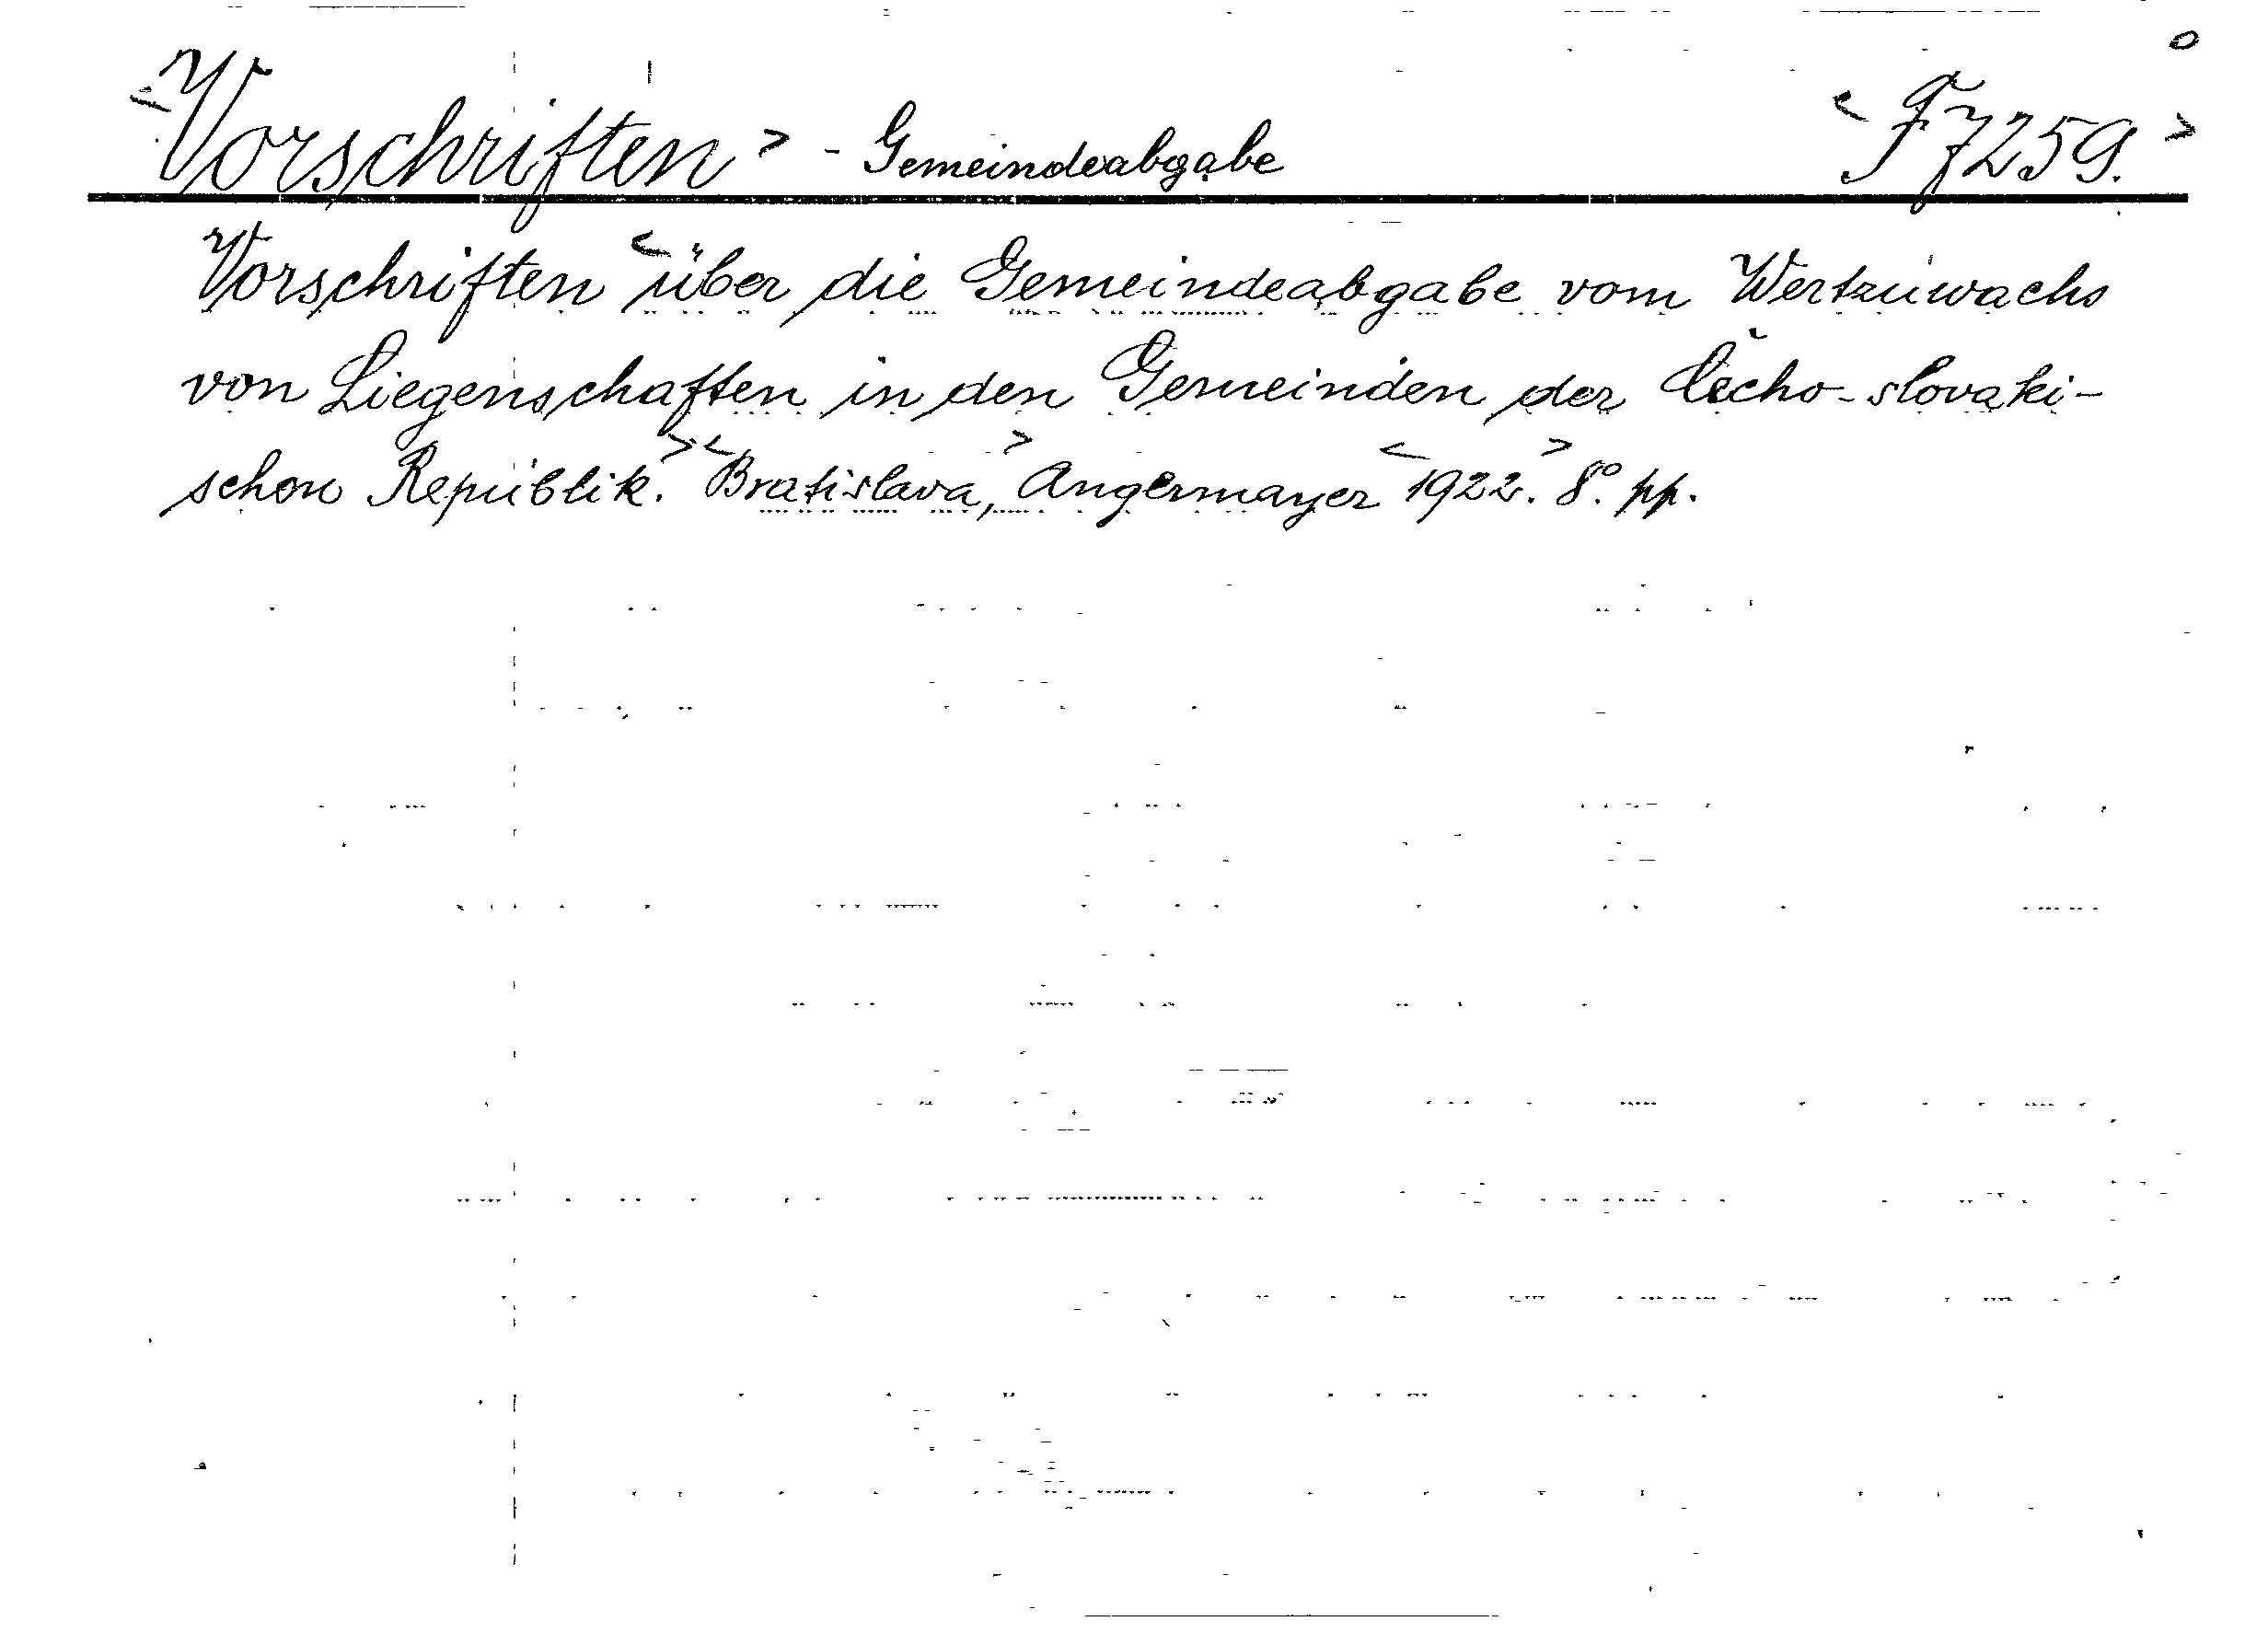 <Vorschriften> - Gemeindeabgabe <F 7259.>
Vorschriften <über die Gemeindeabgabe vom Wertzuwachs
von Liegenschaften in den Gemeinden der Čecho-slovaki-
schen Republik.> <Bratislava,> Angermayer <1922.> 8°. pp.